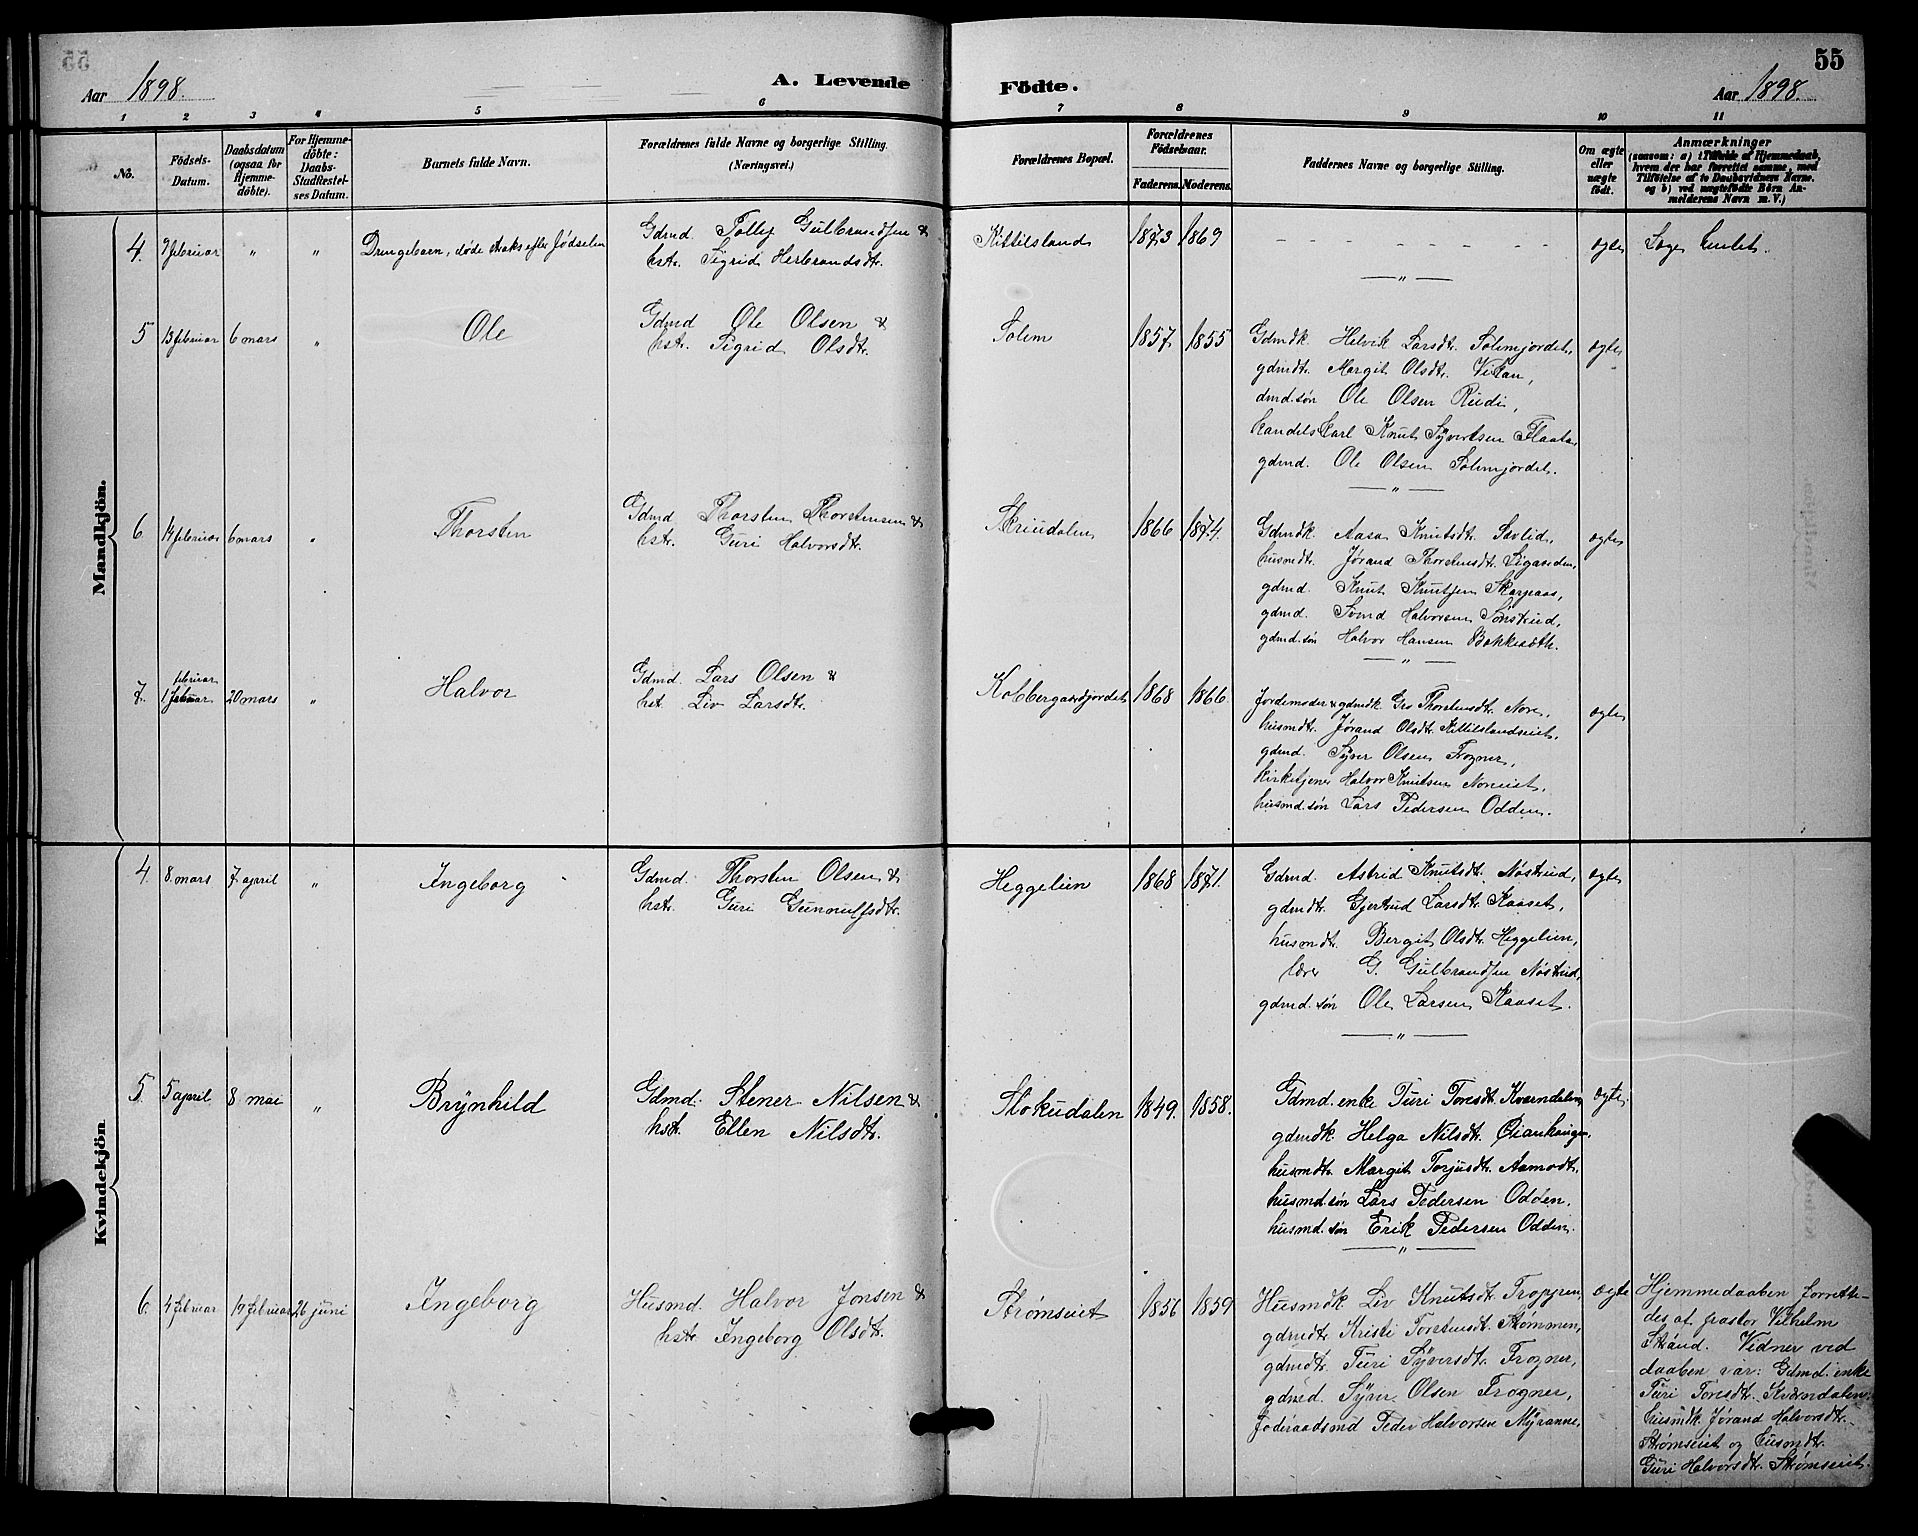 55
Aar 1898.
A. Levende Födte.
Aar 1898.
1 2 3 4 5 6 7 8 9 10 11
No.
Födsels-
Datum.
Daabsdatum
(ogsaa for
Hjemme-
döbte).
For Hjemme-
döbte:
Daabs-
Stadfæstel-
ses Datum.
Barnets fulde Navn.
Forældrenes fulde Navne og borgerlige Stilling.
(Næringsvei.)
Forældrenes Bopæl.
Forældrenes
Födselsaar.
Faderens. Moderens.
Faddernes Navne og borgerlige Stilling.
Om ægte
eller
uægte
födt.
Anmærkninger
(saasom: a) i Tilfælde af Hjemmedaab,
hvem der har forrettet samme, med
Tilföielse af to Daabsvidners Navne,
og b) ved uægtefödte Börn An-
melderens Navn m. V.)
Mandkjön.
4. 9 februar " " Drengebarn, døde straks efter fødselen
Gdmd. Tollef Gulbrandsen &
hstr. Sigrid Herbrandsdtr.
Kittilsland 1873 1869
- - - - - - - -
ægte
— " —
5 13 februar 6 mars " Ole
Gdmd Ole Olsen &
hstr. Sigrid Olsdtr.
Solem 1857 1855
Gdmdk Helvik Larsdtr. Solemjordet,
gdmdtr. Margit Olsdtr. Vikan,
dmd. søn Ole Olsen Rudi,
handelskarl Knut Syvertsen Flaata,
gdmd. Ole Olsen Solemjordet.
ægte
— " —
6 14 februar 6 mars " Thorsten
Gdmd Thorsten Thorstensen &
hstr. Guri Halvorsdtr.
Skriudalen 1866 1874.
Gdmdk. Aasa Knutsdtr. Savlid,
husmdtr. Jørand Thorstensdtr.
gdmd. Knut Knutsen Skarpaas,
gdmd. Svend Halvorsen Sønstrud,
gdmd. søn Halvor Hansen
ægte
— " —
7. februar
1 20 mars " Halvor
Gdmd. Lars Olsen &
hst. Liv Larsdtr.
Kobbergaardjordet 1868 1866
Jordemoder & gdmdk. Gro Thorstensdtr. Nore,
husmdtr. Jørand Olsdtr. Kittilslandseiet,
gdmd. Syver Olsen Frogner,
kirketjener Halvor Knutsen Noreeiet,
husmd. søn Lars Pedersen Odden.
ægte
Kvindekjön
4. 8. mars 7. april " Ingeborg
Gdmd. Thorsten Olsen &
hstr. Guri Gunnulfsdtr.
Heggelien 1868 1871.
Gdmd. Astrid Knutsdtr. Nøstrud,
gdmdtr. Gjertrud Larsdtr. Kaaset,
husmdtr. Bergit Olsdtr. Heggelien,
lærer G. Gulbrandsen Nøstrud,
gdmd. søn Ole Larsen Kaaset.
ægte
— " —
5. 5 april 8. mai " Brynhild
Gdmd. Stener Nilsen &
hstr. Ellen Nilsdtr.
Stokudalen 1849. 1858.
Gdmd. enke Turi Toresdtr. Kværndalen,
gdmdk. Helga Nilsdtr.
husmdtr. Margit Torjusdtr. Aamodt,
husmd. søn Lars Pedersen Odden,
husmd. søn Erik Pedersen Odden.
ægte.
— " —
6. 4 februar 17 februar 26 juni Ingeborg
Husmd. Halvor Jonsen &
hstr. Ingeborg Olsdtr.
Strømseiet 1856 1859
Husmdk. Liv Knutsdtr. Troppen,
gdmdtr Kristi Torstensdtr. Strømmen,
gdmdtr. Turi Syversdtr. Frogner,
gdmd. Syver Olsen Frogner,
Peder Halvorsen Myranne,
ægte
Hjemmedaaben forrette-
des af pastor Vilhelm
Vidner ved
daaben var: Gdmd. enke
Turi Toresdtr. Kværndalen,
husmdk. Jørand Halvorsdtr.
Strømseiet og husmdtr.
Guri Halvorsdtr. Strømseiet.